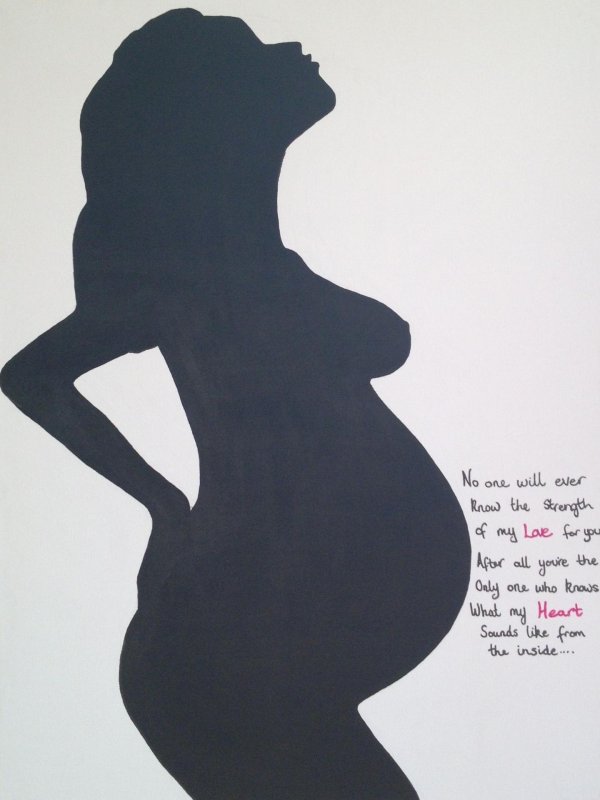 No one will ever
Know the strength
of my Love for you
After all you're the
Only one who knows
What my Heart
Sounds like from
the inside....